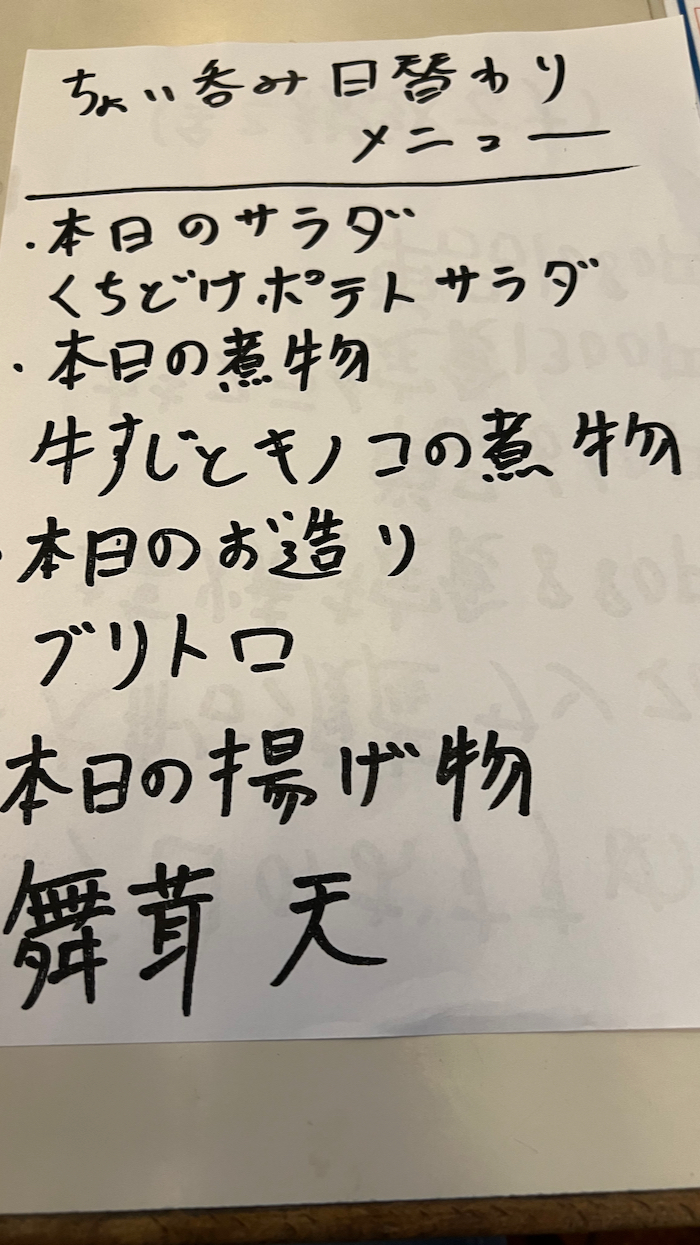 ちょい呑み日替わり
メニュー
・本日のサラダ
くちどけポテトサラダ
・本日の煮物
牛すじとキノコの煮物
・本日のお造り
ブリトロ
本日の揚げ物
舞茸 天